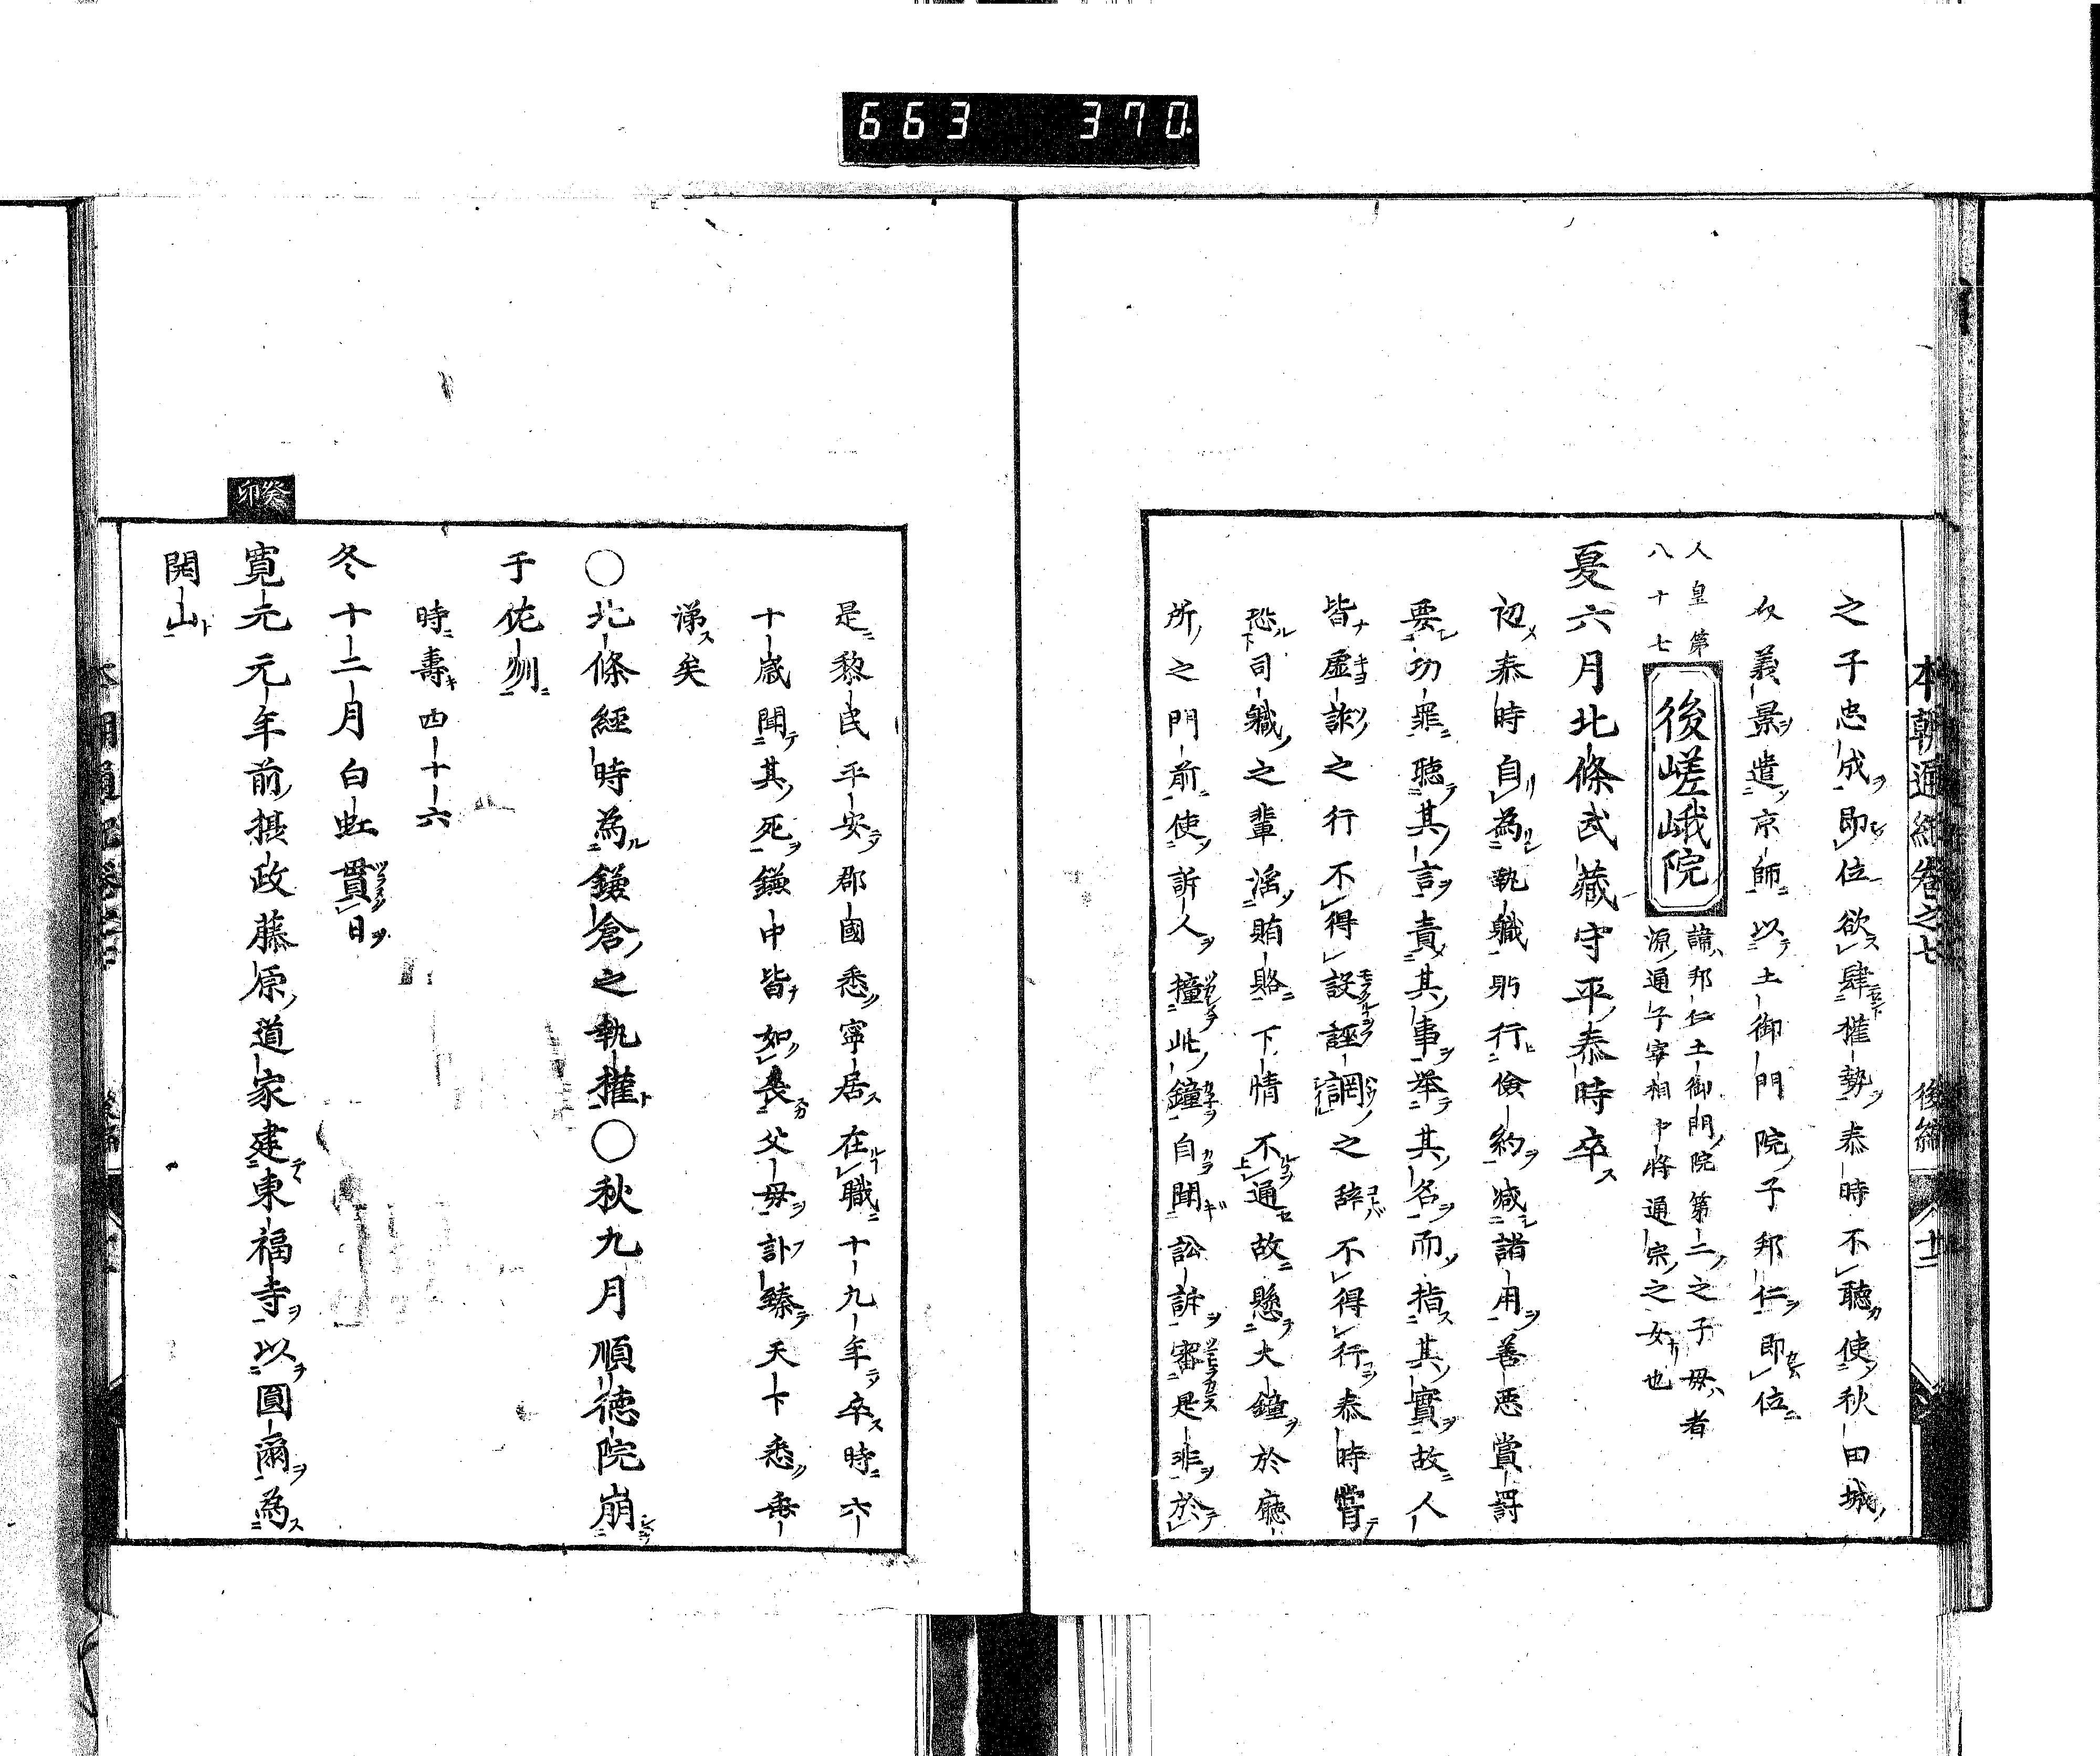 663 370.
本朝通紀卷之七 後編 八 十二
之子忠成即位欲肆權勢泰時不聴使秋田城
義景遣京師以土御門院子邦仁即位
人皇第
八十七
後嵯峨院
諱邦仁土御門院第二之子母者
源通子宰相中將通宗之女也
夏六月北條武藏守平泰時卒
初泰時自為執職躬行儉約減諸用善悪賞罸
要功罪聴其言責其事挙其名而指其實故人
皆虚詐之行不得設誣調之辞不得行泰時嘗
恐司職之輩滛賄賂下情不通故懸大鐘於廳
所之門前使訴人撞此鐘自聞訟訴審是非於
是黎民平安郡國悉寧居在職十九年卒時六
十歳聞其死鎌中皆如喪父母訃臻天下悉垂
涕矣
○北條經時為鎌倉之執權○秋九月順徳院崩
于佐刕
時壽四十六
冬十二月白虹貫日
癸卯
寛元元年前摂政藤原道家建東福寺以圓爾為
開山